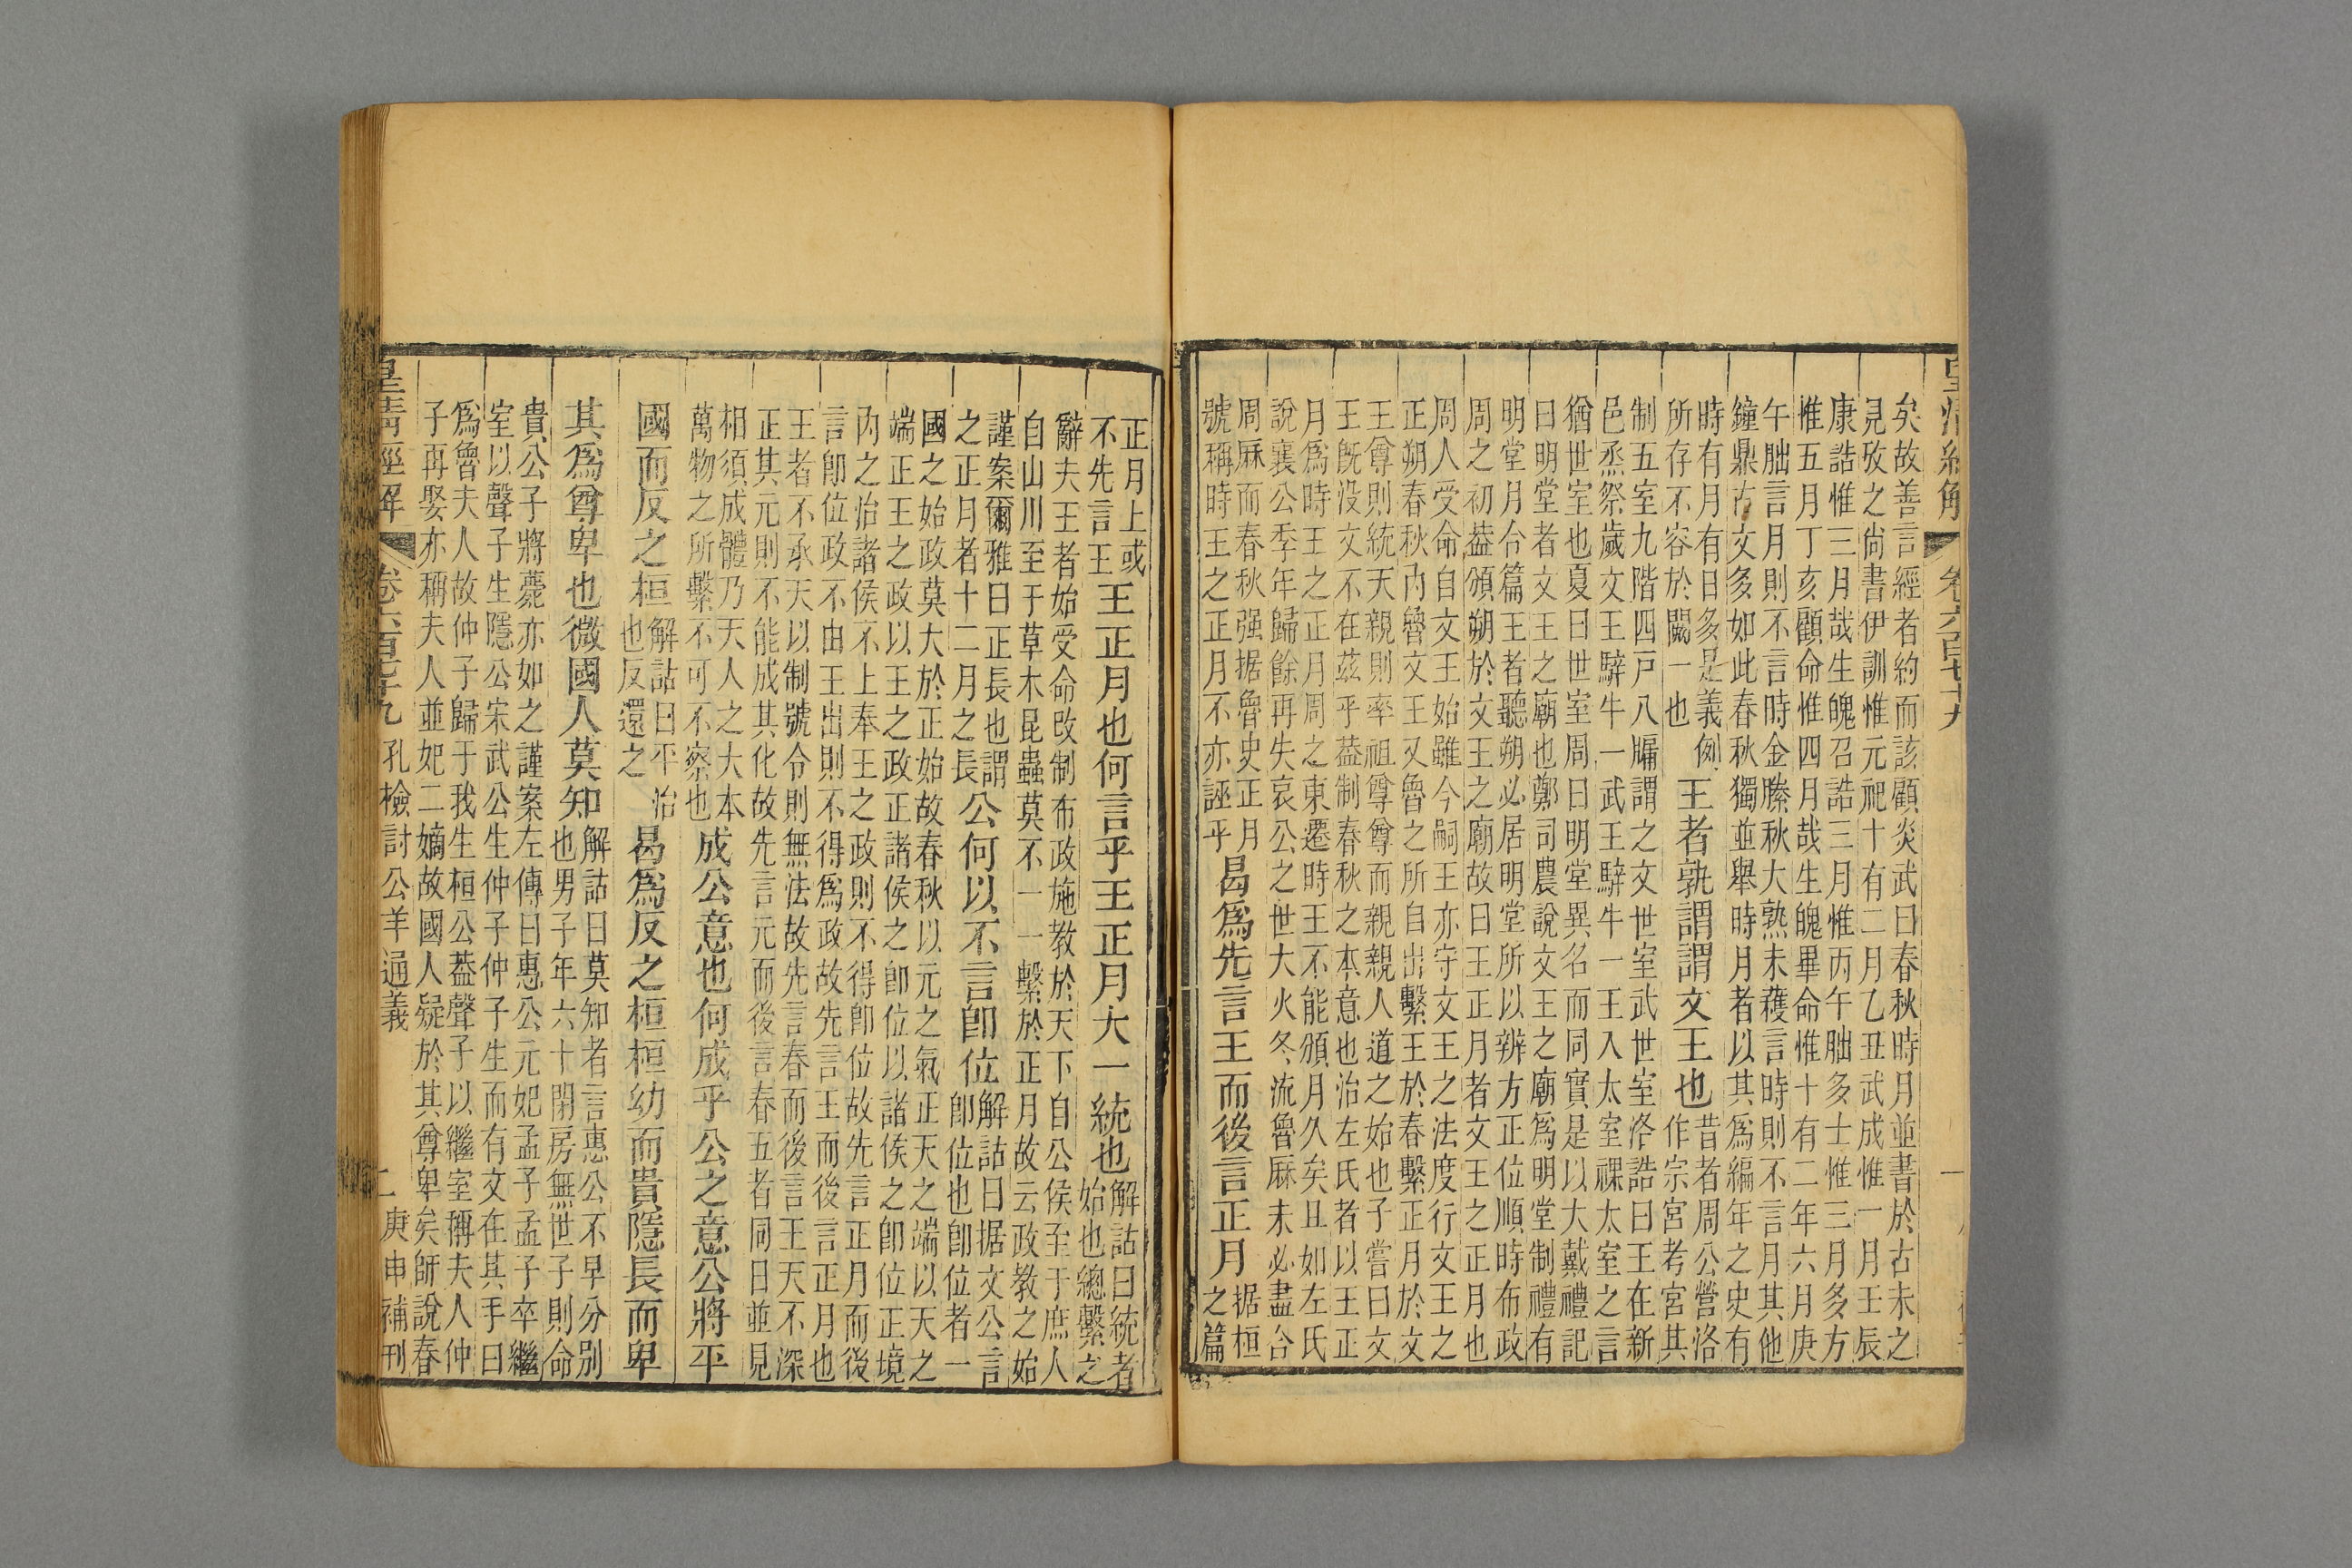 皇清經解 卷六百七十九
矣故善言經者約而該顧炎武曰春秋時月並書於古未之
見攷之尙書伊訓惟元祀十有二月乙丑武成惟一月壬辰
康誥惟三月哉生魄召誥三月惟丙午朏多士惟三月多方
惟五月丁亥顧命惟四月哉生魄畢命惟十有二年六月庚
午朏言月則不言時金縢秋大熟未穫言時則不言月其他
鐘鼎古文多如此春秋獨並舉時月者以其爲編年之史有
時有月有日多是義例
所存不容於闕一也
王者孰謂謂文王也
昔者周公營洛
作宗宮考宮其
制五室九階四戸八牖謂之文世室武世室洛誥曰王在新
邑烝祭歲文王騂牛一武王騂牛一王入太室祼太室之言
猶世室也夏曰世室周曰明堂異名而同實是以大戴禮記
曰明堂者文王之廟也鄭司農說文王之廟爲明堂制禮有
明堂月令篇王者聽朔必居明堂所以辨方正位順時布政
周之初葢頒朔於文王之廟故曰王正月者文王之正月也
周人受命自文王始雖今嗣王亦守文王之法度行文王之
正朔春秋內魯文王又魯之所自出繫王於春繫正月於文
王尊則統天親則率祖尊尊而親親人道之始也子嘗曰文
王旣沒文不在茲乎葢制春秋之本意也治左氏者以王正
月爲時王之正月周之東遷時王不能頒月久矣且如左氏
說襄公季年歸餘再失哀公之世大火冬流魯厤未必盡合
周厤而春秋强据魯史正月
號稱時王之正月不亦誣乎
曷爲先言王而後言正月
据桓
之篇
正月上或
不先言王
王正月也何言乎王正月大一統也
解詁曰統者
始也總繫之
辭夫王者始受命改制布政施教於天下自公侯至于庶人
自山川至于草木昆蟲莫不一一繫於正月故云政教之始
謹案爾雅曰正長也謂
之正月者十二月之長
公何以不言卽位
解詁曰据文公言
卽位也卽位者一
國之始政莫大於正始故春秋以元之氣正天之端以天之
端正王之政以王之政正諸侯之卽位以諸侯之卽位正境
內之治諸侯不上奉王之政則不得卽位故先言正月而後
言卽位政不由王出則不得爲政故先言王而後言正月也
王者不承天以制號令則無法故先言春而後言王天不深
正其元則不能成其化故先言元而後言春五者同日並見
相須成體乃天人之大本
萬物之所繫不可不察也
成公意也何成乎公之意公將平
國而反之桓
解詁曰平治
也反還之
曷爲反之桓桓幼而貴隱長而卑
其爲尊卑也微國人莫知
解詁曰莫知者言惠公不早分別
也男子年六十閉房無世子則命
貴公子將薨亦如之謹案左傳曰惠公元妃孟子孟子卒繼
室以聲子生隱公宋武公生仲子仲子生而有文在其手曰
爲魯夫人故仲子歸于我生桓公葢聲子以繼室稱夫人仲
子再娶亦稱夫人並妃二嫡故國人疑於其尊卑矣師說春
皇清經解 卷六百七十九 孔檢討公羊通義 二 庚申補刊